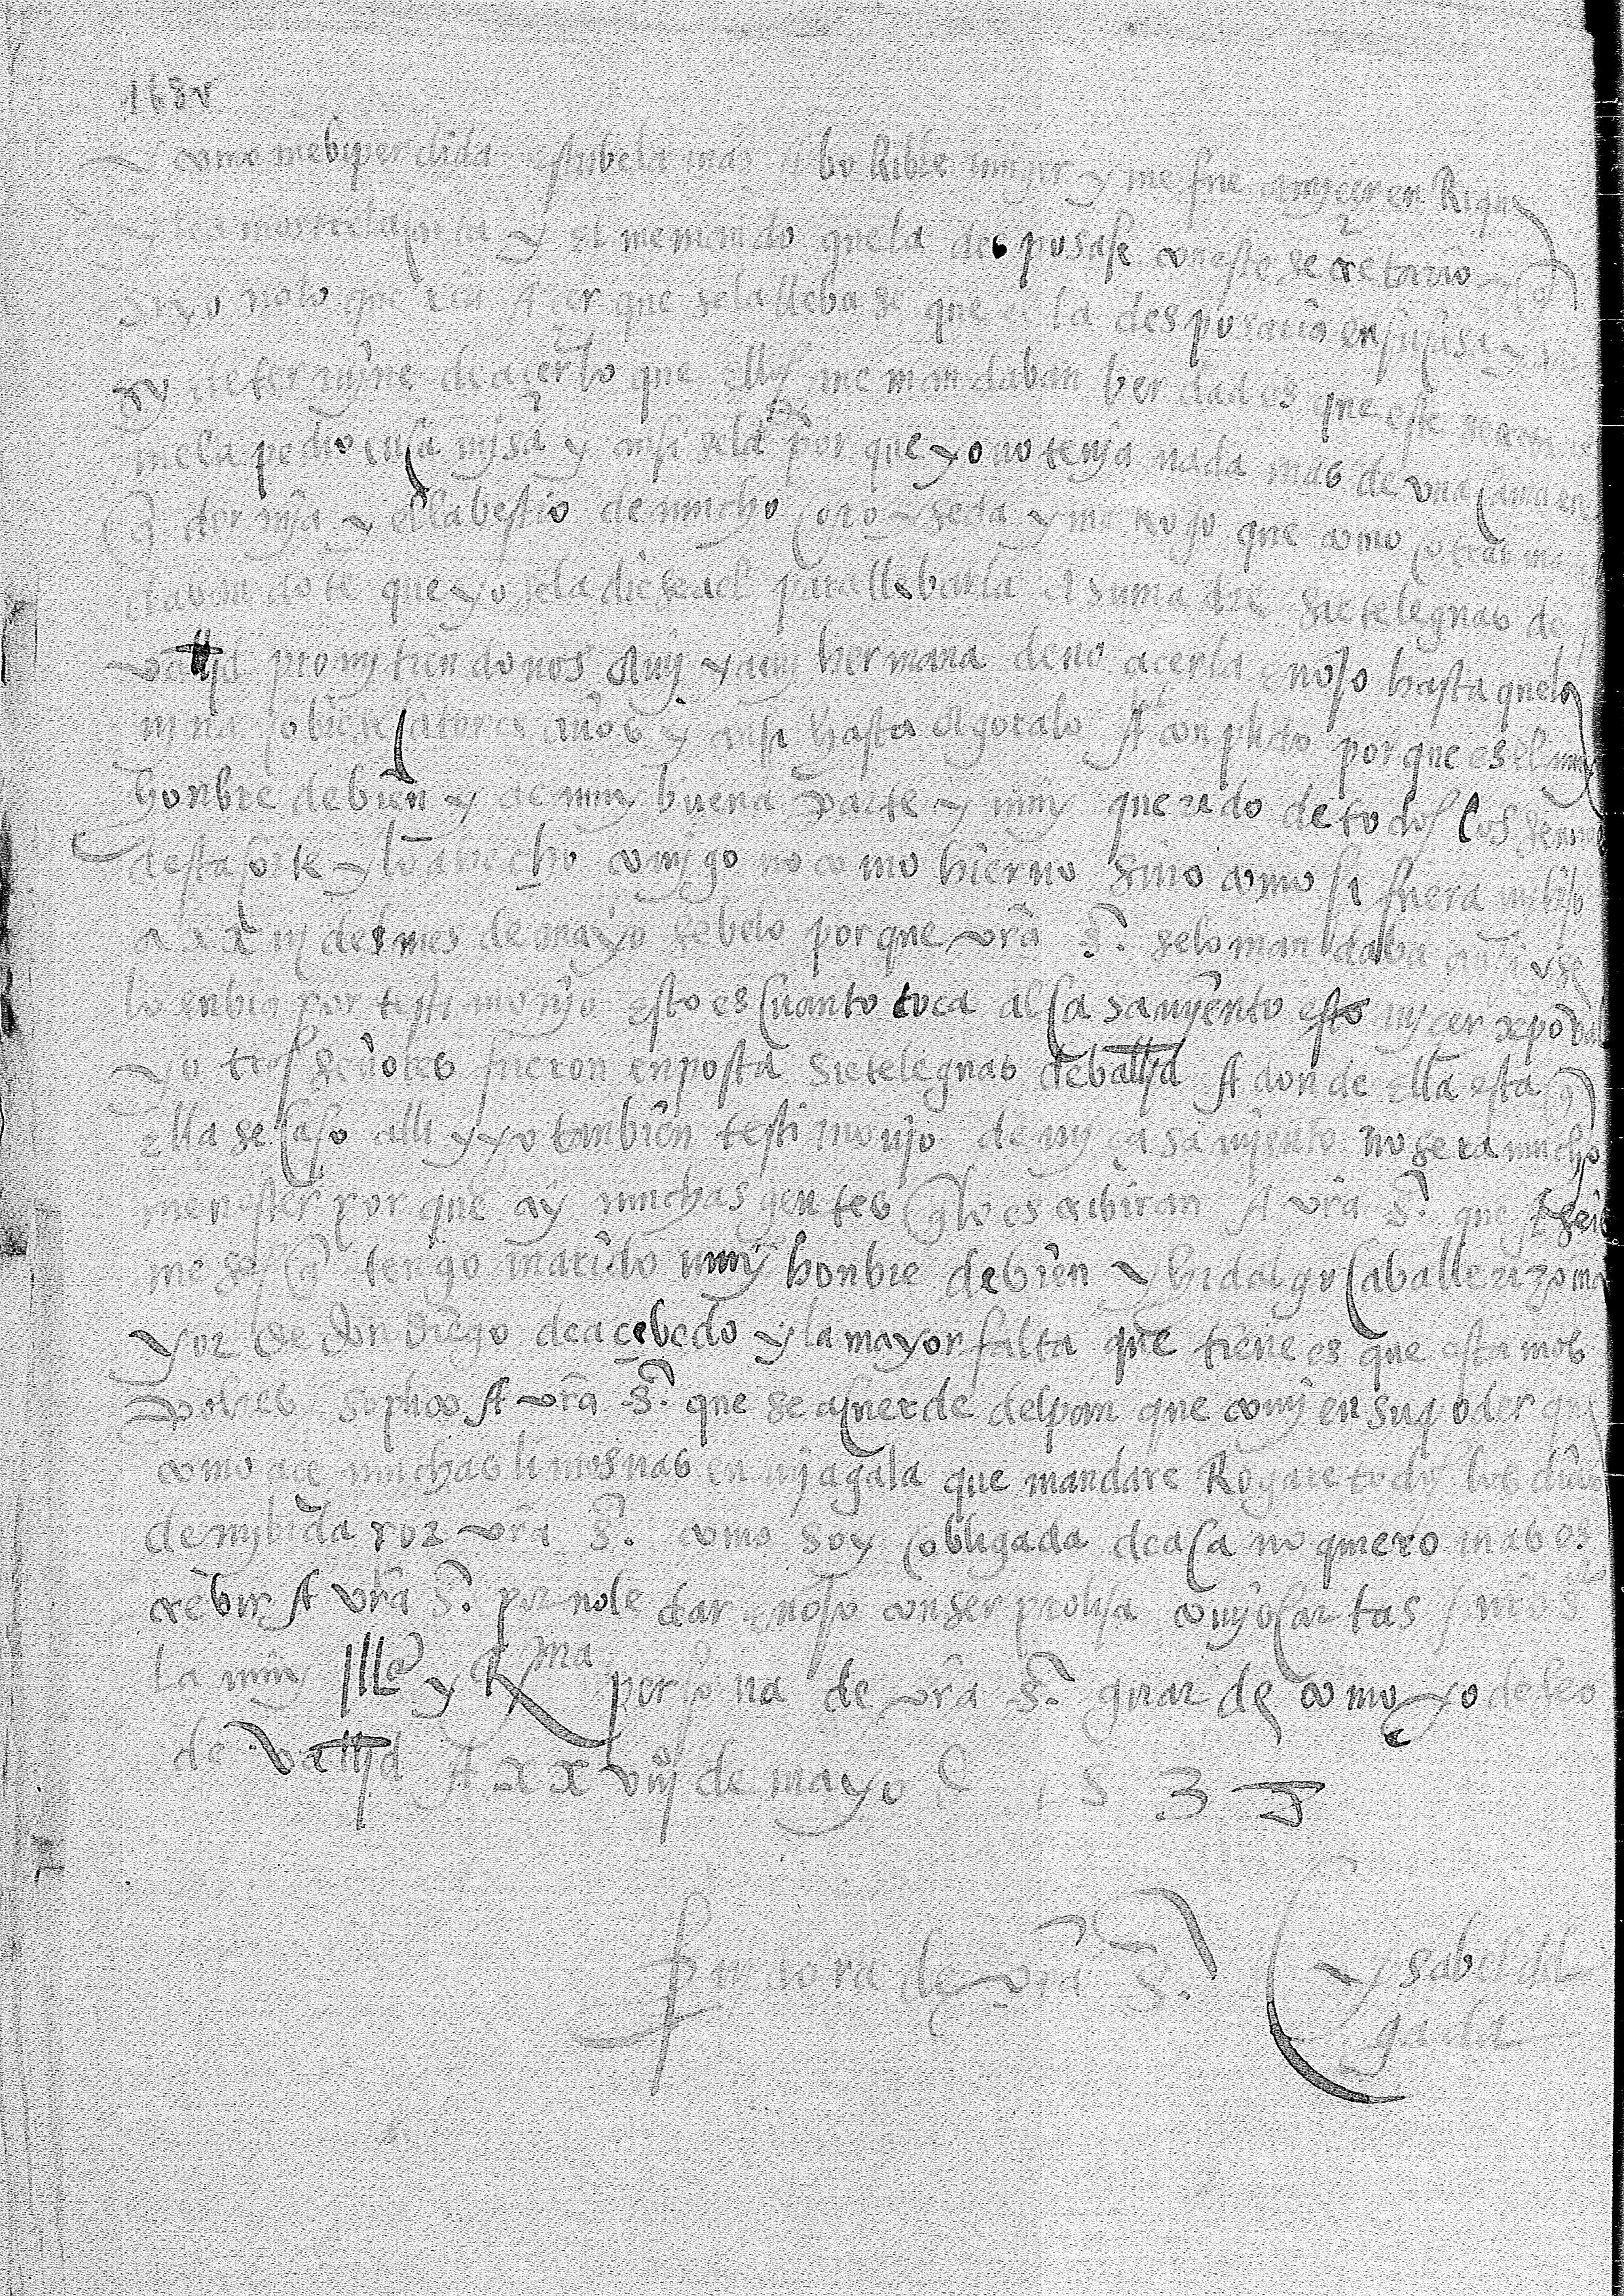 168v
y como me bi perdida estube la mas aborrible muger y me fue a mycer en Riq
y le mostre la carta y el me mando que la desposase con este secretario y q
si yo no lo queria acer que se la llebase que el la desposaria en su casa y
determyne de acer lo que ellos me mandaban berdad es que este secreta
me la pedio en camysa y ansi se la di por que yo no tenya nada mas de una cama en
q dormya y el la bestio de mucho oro y seda y me rogo que como otras ma
daban dote que yo se la diese a el para llebarla a su madre siete leguas de
vallid promytiendonos a my y a my hermana de no acerla enojo hasta que la
nyna obiese catorce años y ansi hasta agora lo a conplido porque es el muy
honbre de bien y de muy buena parte y muy querido de todos los señores
desta corte y lo a hecho comygo no como hierno sino como si fuera my hijo
a xxiij del mes de mayo se belo porque vra sª. se lo mandaba ansi y se
lo enbia por testimonyo esto es cuanto toca al casamyento mycer
y otros señores fueron en posta siete leguas de ballid a donde ella esta q
ella se caso alli y yo tambien testimonyo de my casamyento no sera mucho
menester por que ay muchas gentes q lo escribiran a vra sª. que
me se q tengo marido muy honbre de bien y hidalgo caballerizo ma
yor de don diego de acebedo y la mayor falta que tiene es que estamos
pobres suplico a vra sª. que se acuerde del pan que comy en su poder que
como ace muchas limosnas en myagala que mandare Rogare todos los dias
de my bida por vra sª. como soy obligada de aca no quiero mas es
crebir a vra sª. por no le dar enojo con ser prolija con mys cartas / nro sr
la muy Ille y Rma persona de vra sª. guarde como yo deseo
de vallid A xxviij de mayo de 1533
Servidora de vra sª.
ysabel del
gada